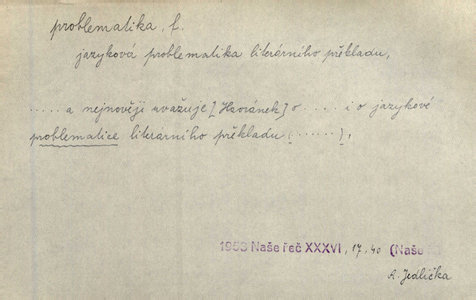 problematika, f.
jazyková problematika literárního překladu,
..... a nejnověji uvažuje [Havránek] o ..... i o jazykové
problematice literárního překladu (......),
1953 Naše řeč XXXVI, 17, 40 (Naše
A. Jedlička